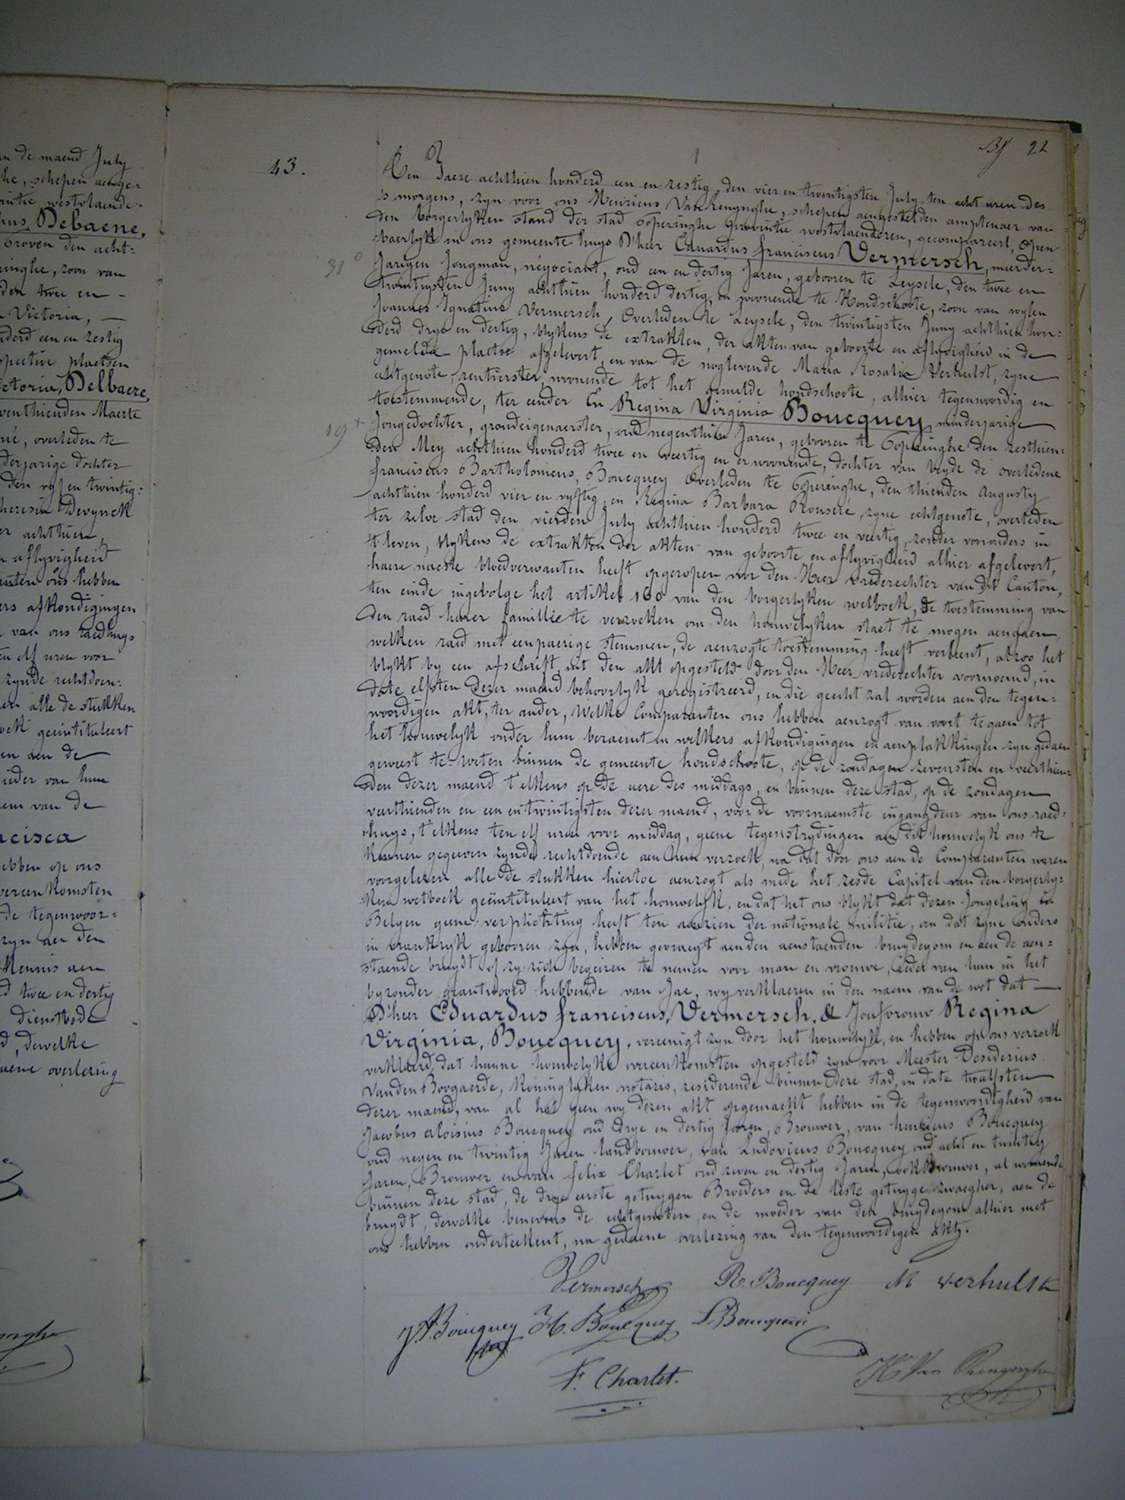 an de maend July
che, schepen aenge
intie westvlaende-
nus Debaene,
Proven den acht-
ringhe, zoon van
den twee en -
a Victoria, -
nderd een en zestig
spective plaetsen
ctoria, Delbaere,
venthienden Maerte
né, overleden te
derjarige dochter
den vyf en twintig-
heresia Devynck
er achthien
n aflyvigheid
anten ons hebben
ers afkondigingen
van ons raedhuys
ten elf uren voor
zynde rechtdoen-
en alle de stukken
oek geintituleert
en aen de
ieder van hun
aem van de
ncisca
ebben op ons
vereenkomsten
de tegenwoor-
zyn aen den
Mennis aen
d twee en dertig
dienstbode
d, dewelke
aene overlezing
Bf 22
43.
Den Jaere achthien honderd een en zestig, den vier en twintigsten July ten acht uren des
's morgens, zyn voor ons Henricus Van Renynghe, schepen aengestelden amptenaer van
den borgerlyken stand der stad Poperinghe Provintie westvlaenderen, gecompareert, open-
baerlyk in ons gemeente huys D'heer Eduardus franciscus Vermersch, meerder-
31°
Jarigen Jongman, négociant, oud een en dertig Jaren, gebooren te Leysele, den twee en
twintigsten Juny achthien honderd dertig, en woonende te Hondschoote, zoon van wylen
Joannes Ignatius Vermersch, overleden te Leysele, den twintigsten Juny achthien hon-
derd drye en dertig, blykens de extrakten, der akten van geboorte en aflyvigheid in de
gemelde plaetse afgelevert, en van de noglevende Maria Rosalie Verhulst, zyne
echtgenote, rentierster, woonende tot het gemelde hondschoote, alhier tegenwoordig en
toestemmende, ter eender En Regina Virginia Boucquey, minderjarige
19
Jongedochter, grondeigenaerster, oud negenthien Jaren, gebooren te Poperinghe den zesthien-
den Mey achthien honderd twee en veertig en er woonende, dochter van beyde de overledene
franciscus Bartholomeus, Boucquey overleden te Poperinghe, den thienden Augusty
achthien honderd vier en vyftig, en Regina Barbara Rousere, zyne echtgenote, overleden
ter zelve stad den vierden July achthien honderd twee en veertig, zonder voorouders in
't leven, blykens de extrakten der akten van geboorte en aflyvigheid alhier afgelevert,
haere naeste bloedverwanten heeft opgeroepen voor den Heer vrederechter van dit Canton,
ten einde ingevolge het artikel 160 van den borgerlyken wetboek, de toestemming van
den raed harer famillie te verzoeken om den houwelyken staet te mogen aengaen
welken raed met eenpaerige stemmen, de aenzogte toestemming heeft verleent, alzoo het
blykt by een afschrift uit den akt opgesteld door den Heer vrederechter voornoemd, in
date elfsten dezer maend behoorlyk geregistreerd, en die gecht zal worden aen den tegen-
woordigen akt, ter ander, Welke Comparanten ons hebben aenzogt van voort te gaen tot
het houwelyk onder hun beraemt en welkers afkondigingen en aenplakkingen zyn gedaen
geweest te weten binnen de gemeente hondschoote, op de zondagen zevensten en veerthien-
den dezer maend t'elkens op de uere des middags, en binnen deze stad, op de zondagen
veerthienden en een en twintigsten dezer maend, voor de voornaemste ingangdeur van ons raed-
huys, t'elkens ten elf uren voor middag, geene tegenstrydingen aen dit houwelyk ons te
kennen gegeven zynde rechtdoende aen hun verzoek, na dat door ons aen de Comparanten waren
voorgelezen alle de stukken hiertoe aenzogt als mede het zesde Capitel van den borgerly-
ken wetboek geïntituleert van het houwelyk, en dat het ons blykt dat dezen Jongeling als
Belgen geene verplichting heeft ten aenzien der nationale militie, om dat zyne ouders
in frankryk gebooren zyn, hebben gevraegt aen den aenstaenden bruydegom en aen de aen-
staende bruydt of zy zich begeiren te nemen voor man en vrouwe, ieder van hun in het
byzonder geantwoord hebbende van Jae, wy verklaeren in den naem van de wet dat -
D'heer Eduardus franciscus, Vermersch, & Joufvrouw Regina
Virginia, Boucquey, vereenigt zyn door het houwelyk, en hebben op ons verzoek
verklaerd, dat hunne houwelyke vereenkomsten opgesteld zyn voor Meester Desiderius
Vanden Bogaerde, koninglyken notaris, residerende binnen deze stad, in date twalfsten
dezer maend, van al het geen wy dezen akt opgemaekt hebben in de tegenwoordigheid van
Jacobus Aloisius Boucquey oud drye en dertig Jaren, Brouwer, van henricus Boucquey
oud negen en twintig Jaren landbouwer, van Ludovicus Boucquey oud acht en twintig
Jaren, Brouwer en van felix Charlet oud zeven en dertig Jaren, ook Brouwer, al woonende
binnen deze stad, de drye eerste getuygen Broeders en de leste getuyge zwaegher, aen de
bruydt, dewelke benevens de echtgenoten, en de moeder van den bruydegom alhier met
ons hebben onderteekent, na gedaene overlezing van den tegenwoordigen akte.
Vermersch R. Boucquey M verhulst
JABoucquey H. Boucquey L Boucquey
F. Charlet. H. Van Renynghe